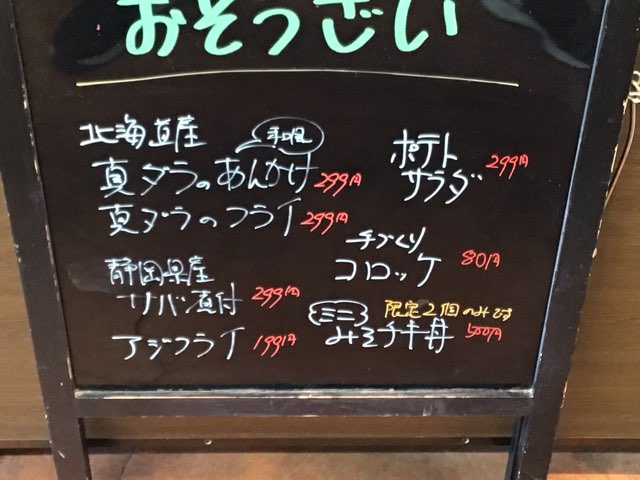 おそうざい
北海道産
真ダラのあんかけ 299円
真ダラのフライ 299円
静岡県産
サバ煮付 299円
アジフライ 199円
ポテト
サラダ 299円
手づくり
コロッケ 80円
ミニ 限定2個のみです
みそチキ丼 500円